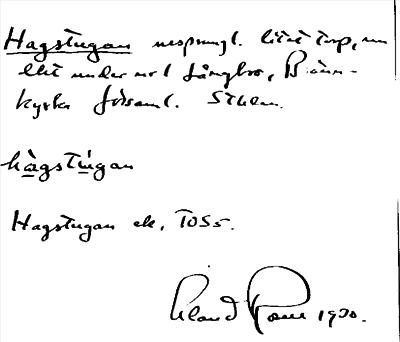 Hagstugan ursprungl. litet torp, nu
ett under nr 1 Långbro, Bränn-
kyrka församl. Sthlm.
hàgstúgan
Hagstugan ek. TOSS.
1930.